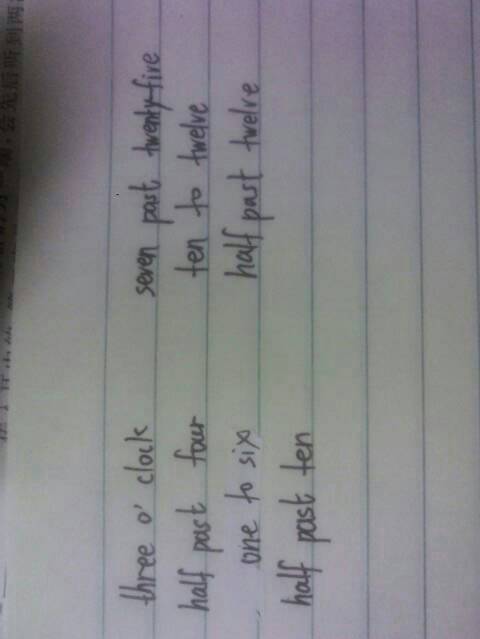 three o' clock seven past twenty-five
half past four ten to twelve
one to six half past twelve
half past ten